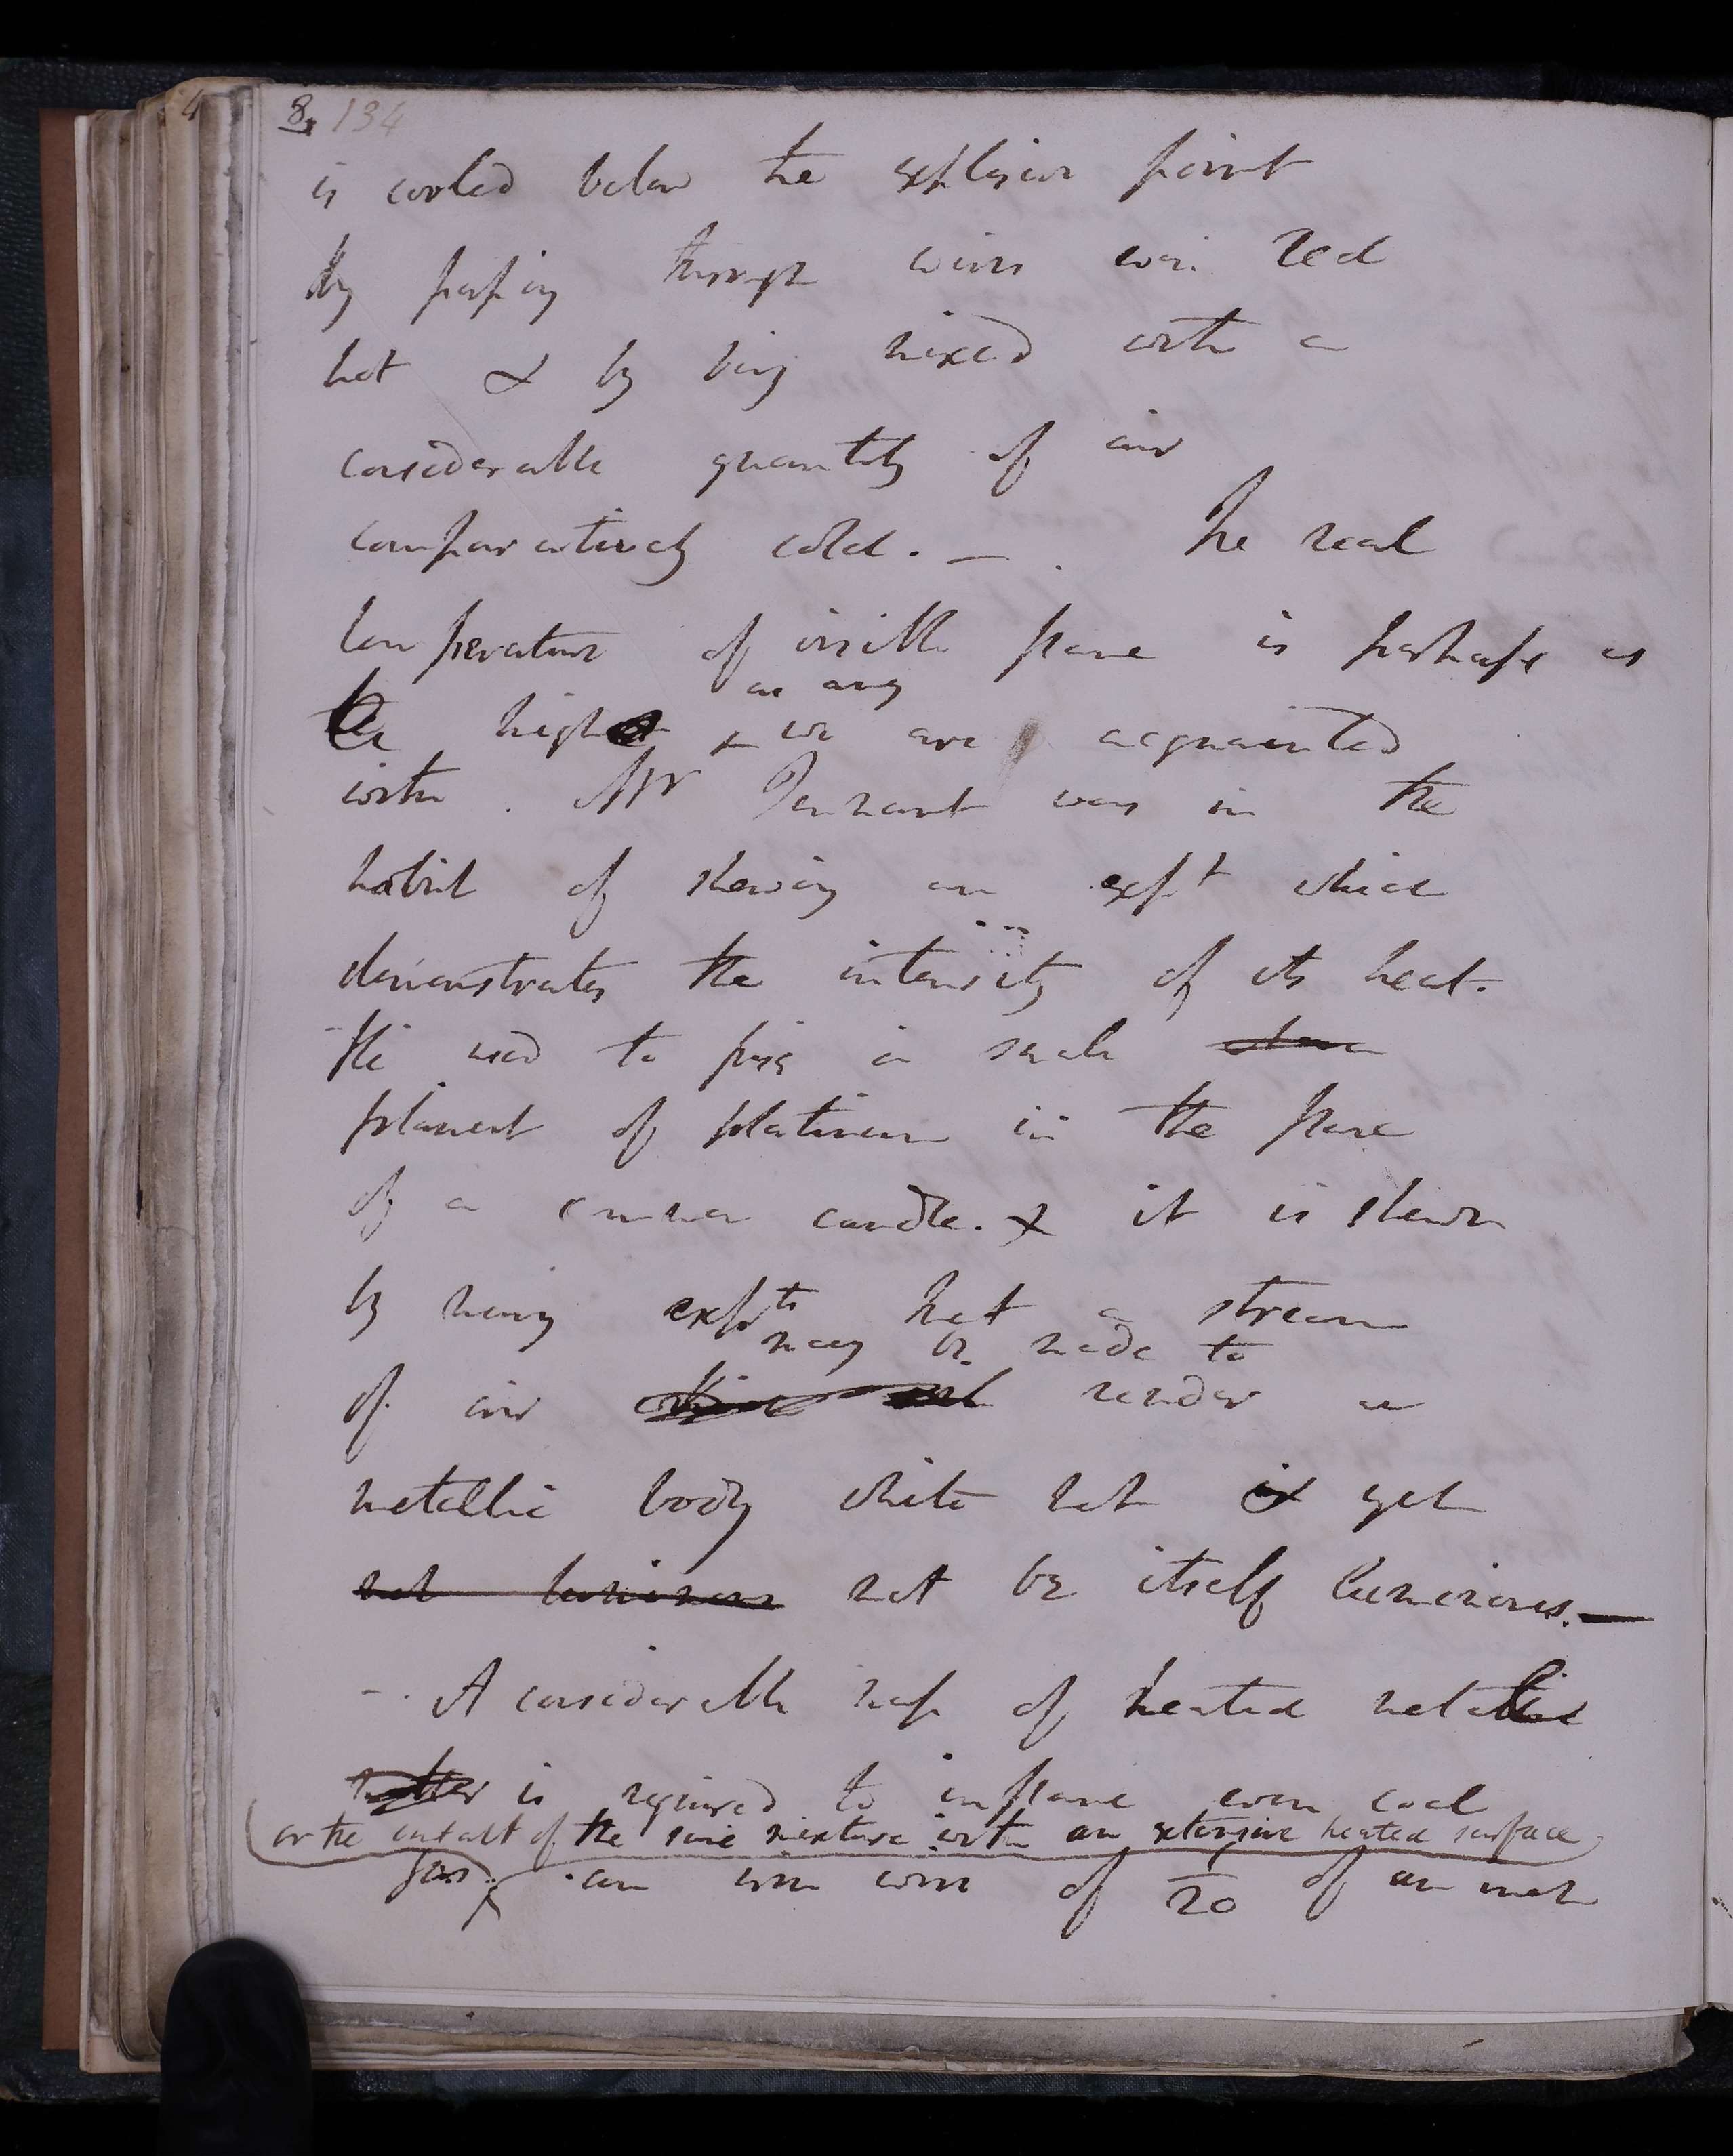 8, 134
is cooled below the explosion point
by passing through wires even red
hot & by being mixed with a
considerable quantity of air
comparatively cold. — The real
temperature of visible flame is perhaps as
as any
high we are acquainted
with. Mr Tennant was in the
habit of shewing an expt which
demonstrates the intensity of its heat.
He used to fuse a small
filament of platinum in the flame
of a common candle. & it is shewn
by many expts that a stream
may be made to
of air render a
metallic body white hot yet
not luminous not be itself luminous. —
-. A considerable mass of heated metallic
matter is required to inflame even coal
or the contact of the same mixture with an extensive heated surface
gas. an iron wire of 1/20 of an inch